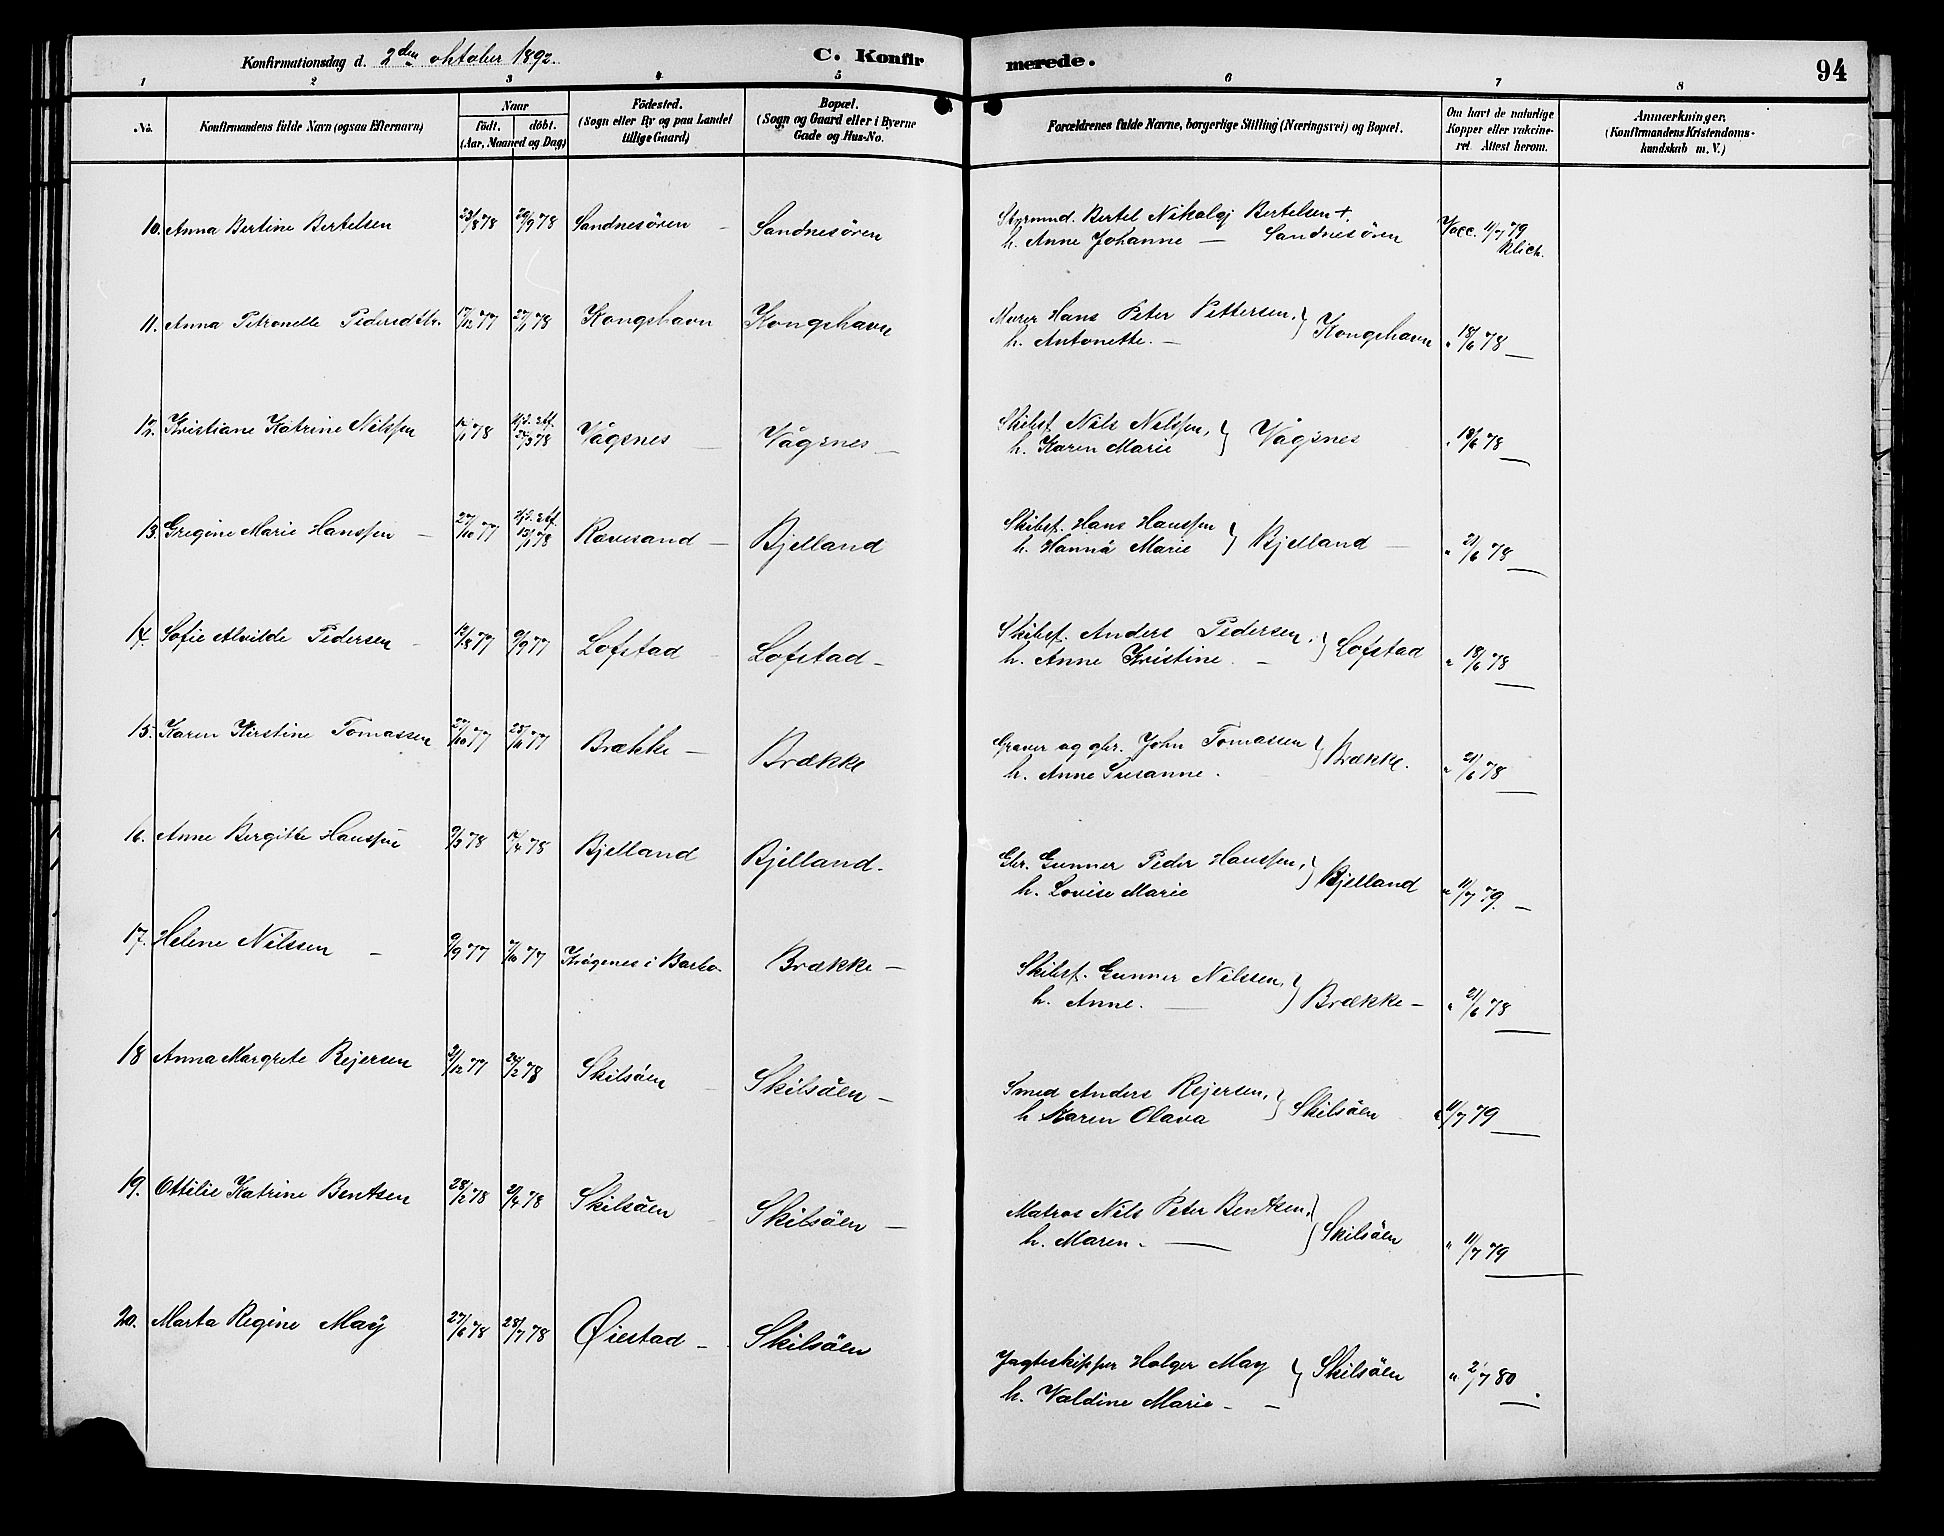 Konfirmationsdag d. 2den oktober 1892. C. Konfirmerede. 94
1 2 3 4 5 6 7 8
No.
Konfirmandens fulde Navn (ogsaa Efternavn)
Naar
födt. döbt.
(Aar, Maaned og Dag)
Födested.
(Sogn eller By og paa Landet
tillige Gaard)
Bopæl.
(Sogn og Gaard eller i Byerne
Gade og Hus-No.
Forældrenes fulde Navne, borgerlige Stilling (Næringsvei) og Bopæl.
Om havt de naturlige
Kopper eller vakcine-
ret Attest herom.
Anmærkninger.
(Konfirmandens Kristendoms-
kundskab m. V.)
10. Anna Bertine Bertelsen 23/8 78 29/9 78 Sandnesören Sandnesören
Styrmnd. Bertel Nikolaj Bertelsen +.
h. Anne Johanne — Sandnesören
Vacc. 11/7 79
Klich.
11. Anna Petronelle Pedersdtr. 17/12 77 27/1 78 Kongshavn Kongshavn
Murer Hans Peter Pettersen,
h. Antonette. — } Kongshavn " 18/6 78 —
12. Kristiane Katrine Nilssen 12/1 78 Hjd. Stf. 24/3 78 Vågsnes Vågsnes —
Skibst. Nils Nilssen,
h. Karen Marie } Vågsnes " 18/6 78 —
13. Gregine Marie Hanssen — 27/10 77 Hjd. Stf. 13/1 78 Revesand — Bjelland
Skibst. Hans Hanssen
h. Hanna Marie } Bjelland — " 21/6 78 —
14. Sofie Alvilde Pedersen 12/8 77 9/9 77 Lofstad Lofstad —
Skibst. Anders Pedersen,
h. Anne Kristine. — } Lofstad " 18/6 78 —
15. Karen Kirstine Tomassen 27/10 77 25/11 77 Brække — Brække
Graver og gbr. John Tomassen
h. Anne Susanne. } Brække. " 21/6 78 —
16. Anne Bergitte Hanssen 9/3 78 14/4 78 Bjelland Bjelland.
Gbr. Gunner Peder Hanssen,
h. Lovise Marie } Bjelland " 11/7 79. —
17. Helene Nilssen — 9/9 77 7/10 77 Krögenes i Barbo Brække —
Skibst. Gunner Nilssen,
h. Anne. — } Brække — " 21/6 78 —
18 Anna Margrete Rejersen 31/12 77 24/2 78 Skilsöen Skilsöen —
Smed Anders Rejersen,
h Karen Olava } Skilsöen " 11/7 79 —
19. Ottilie Katrine Bentsen 28/2 78 21/4 78 Skilsöen Skilsöen —
Matros Nils Peter Bentsen,
h. Maren. — } Skilsöen " 11/7 79 —
20. Marta Regine May 27/6 78 28/7 78 Øiestad — Skilsöen
Jagteskipper Holger May
h. Valdine Marie — — } Skilsöen " 2/7 80 —